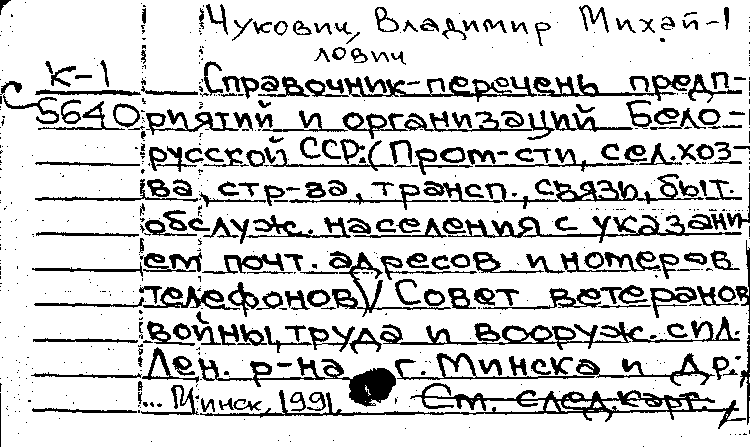 Чукович, Владимир Михай-
лович
К-1 Справочник-перечень предп-
5640 риятий и организаций Бело-
русской ССР:(Пром-сти, сел.хоз-
ва, стр-ва, трансп., связи, быт.
обслуж. населения с указани-
ем почт. адресов и номеров
телефонов)/ Совет ветеранов
войны, труда и вооруж. сил.
Лен. р-на г. Минска и др.;
... Минск, 1991.  См. след.карт.